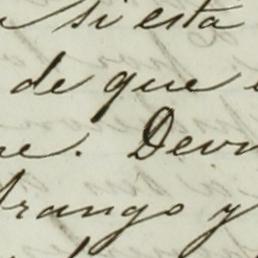 si esta
de que
. Dev
rango y